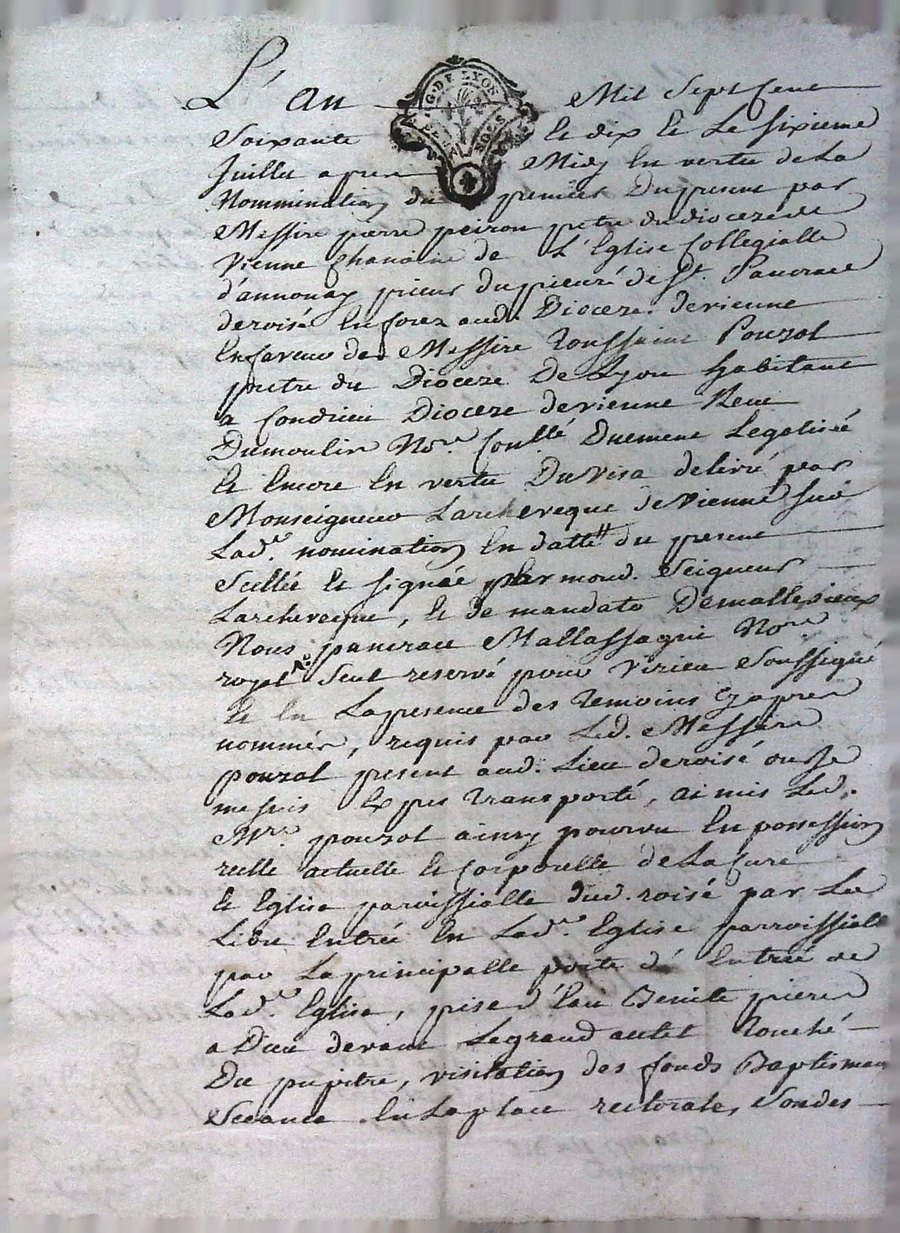 L'an Mil Sept Cent
G. DE LYON
Soixante Et dix Et Le Sixieme
Juillet apres Midy En vertu de La
Nommination du premier Du present par
Messire pierre peiron pretre du dioceze de
Vienne Chanoine de L'Eglise Collegialle
d'annonay prieur du prieuré de St. Pancrace
deroisé En forez aud. Dioceze de vienne
En faveur de Messire Toussaint Pouzol
pretre du Dioceze De Lyon habitant
a Condrieu Dioceze de vienne Recue
Dumoulin Nore. Duement Legalisée
Et Encore En vertu Du Visa delivré par
Monseigneur Larcheveque de Vienne Sur
Lade. nomination En datte du present
Scellée Et signée par mond. Seigneur
Larcheveque, Et de mandato
Nous pancrace Mallassagne Nore
royal Seul reservé pour Virieu Soussigné
Et En La presence des Temoins Cy apres
nommés, requis par Led. Messire
pouzol present aud. Lieu deroisé ou Je
me suis Expres Transporté, ai mis Led.
Mre. pouzol ainsy pourvu En possession
reelle actuelle Et Corporelle de La Cure
Et Eglise parroissialle dud. roisé par La
Libre Entrée En Lade. Eglise parroissialle
par La principalle porte d'Entrée de
Lade. Eglise, prise d'Eau Benite priere
a Dieu devant Le grand autel Touché
Du pupitre, visitation des fonds Baptismaux
Seance En La place rectorale, Son des